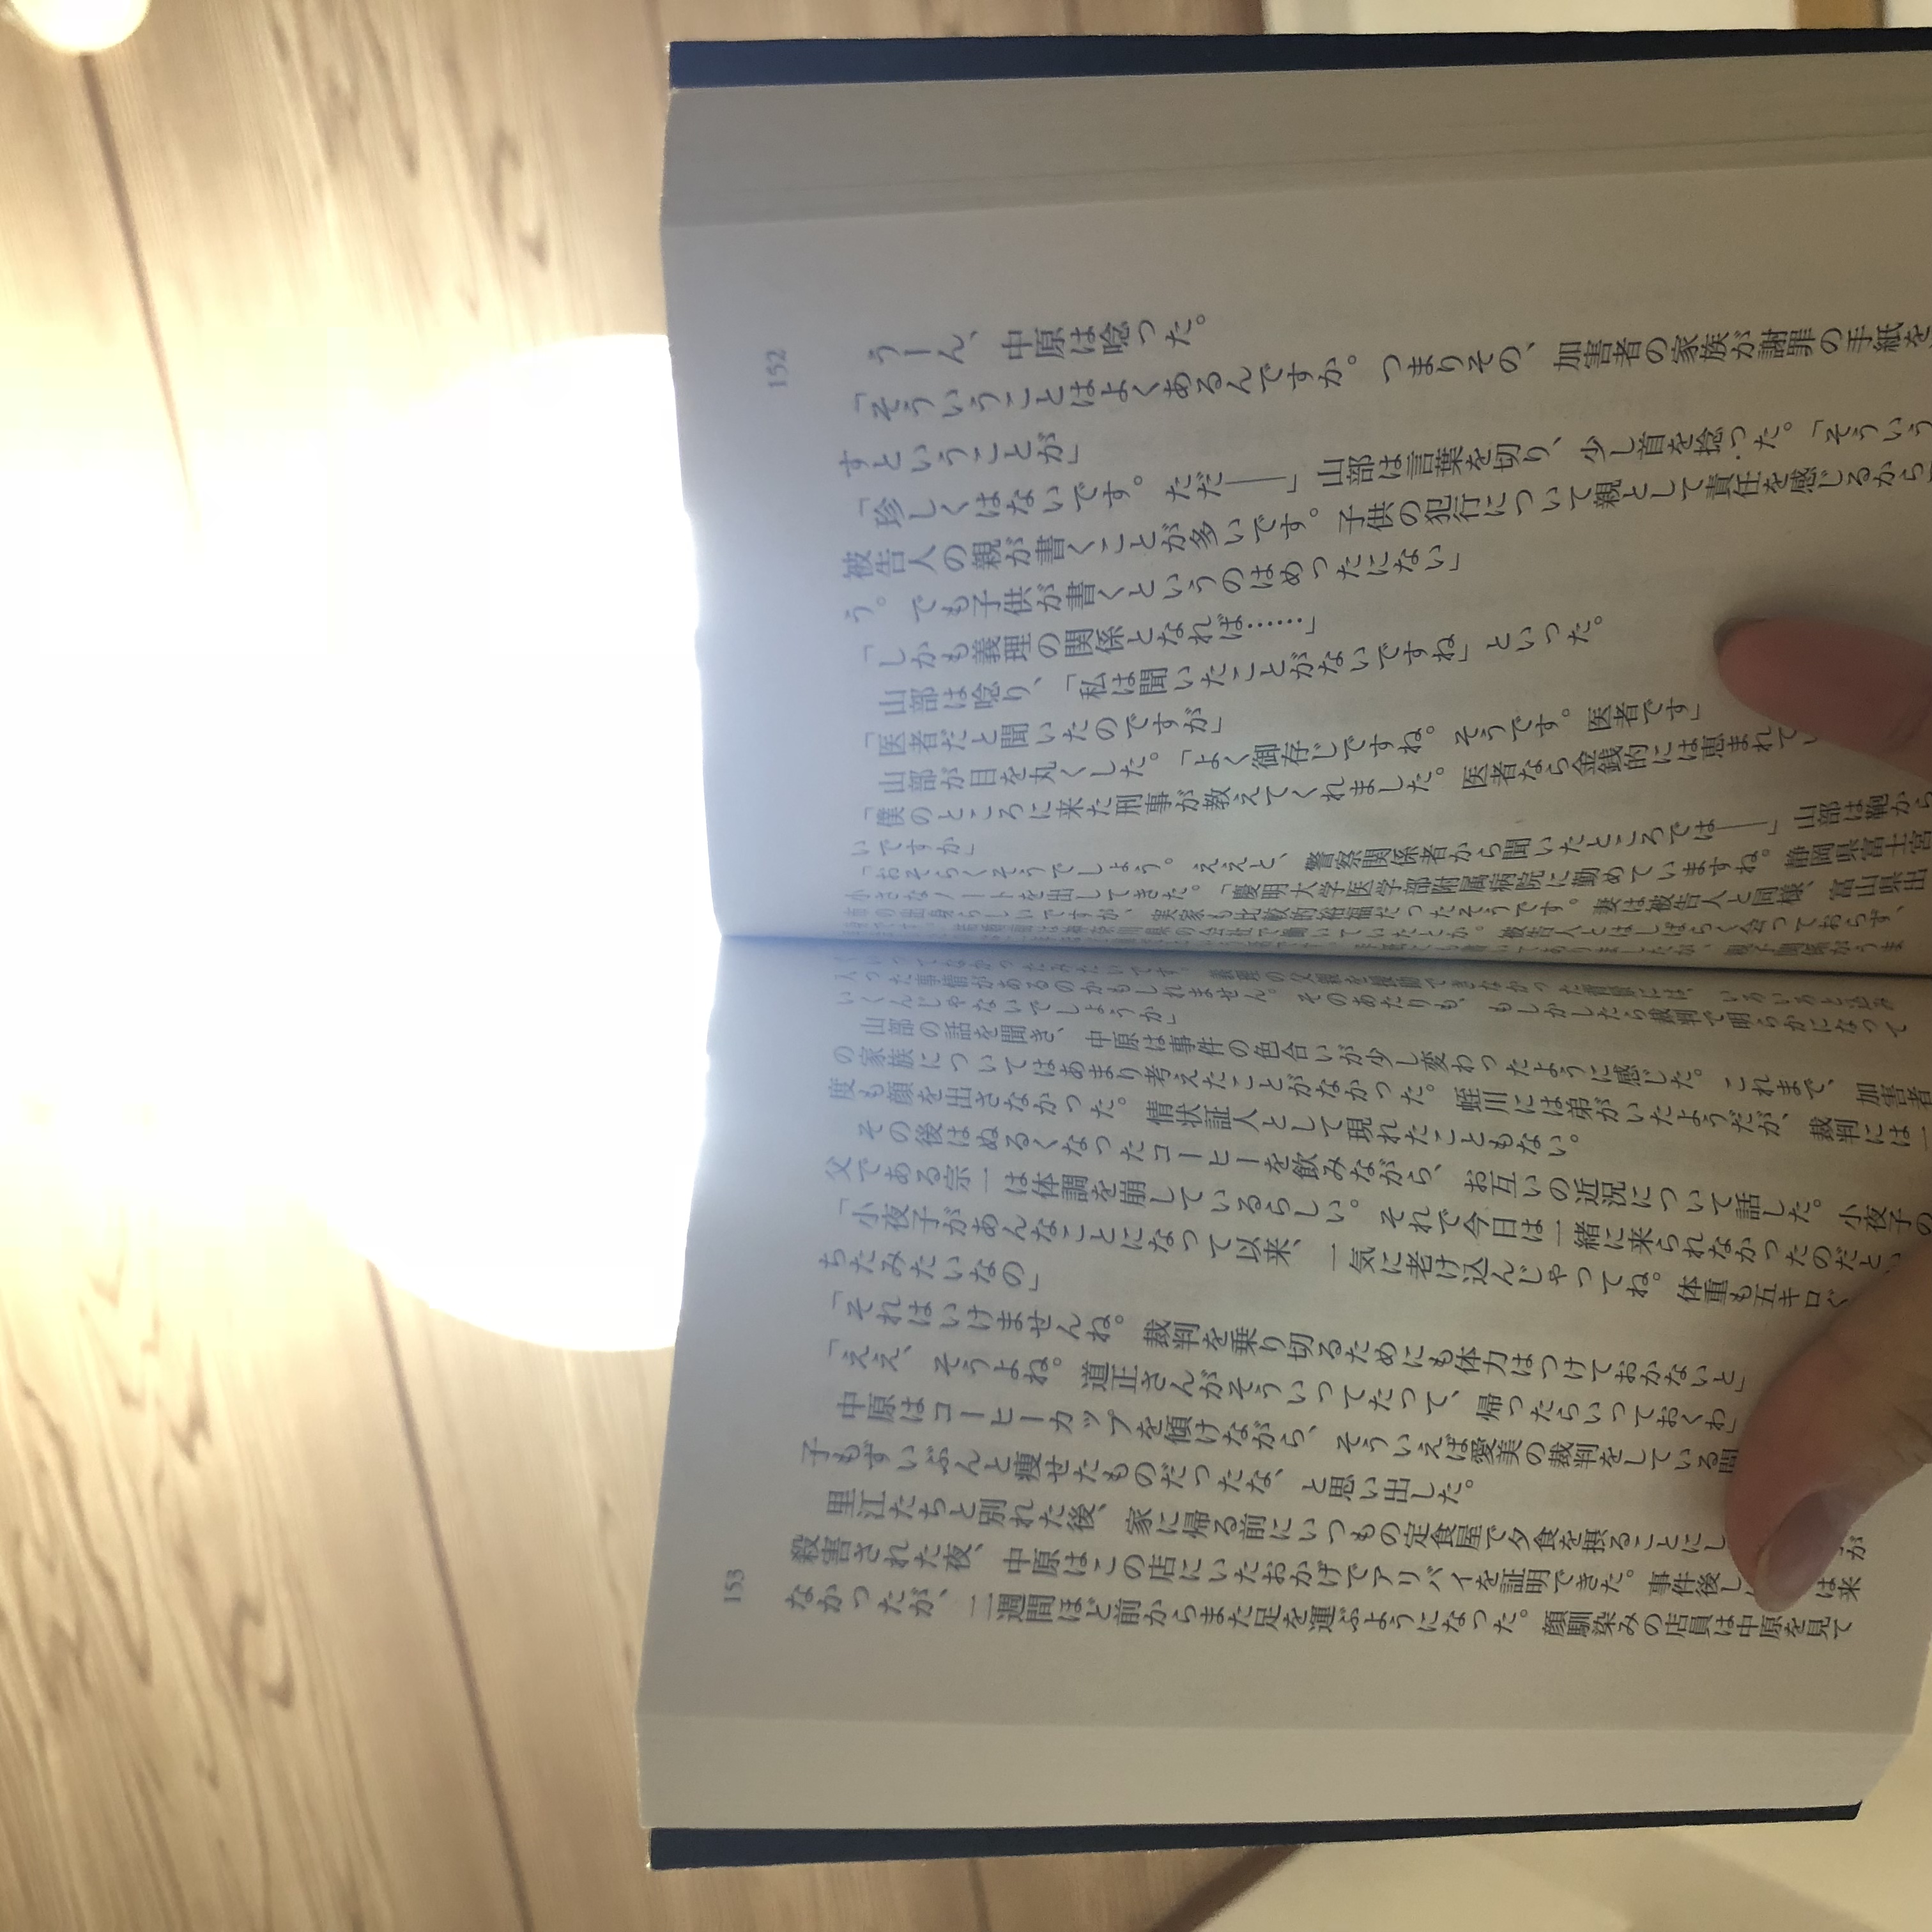 152
うーん、中原は唸った。
「そういうことはよくあるんですか。つまりその、加害者の家族が謝罪の手紙を
すということが」
「珍しくはないです。ただ――」山部は言葉を切り、少し首を捻った。「そういう
被告人の親が書くことが多いです。子供の犯行について親として責任を感じるから
う。でも子供が書くというのはめったにない」
「しかも義理の関係となれば……」
山部は唸り、「私は聞いたことがないですね」といった。
「医者だと聞いたのですが」
山部が目を丸くした。「よく御存じですね。そうです。医者です」
「僕のところに来た刑事が教えてくれました。医者なら金銭的には恵まれて
いですか」
「おそらくそうでしょう。ええと、警察関係者から聞いたところでは――」山部は鞄から
小さなノートを出してきた。「慶明大学医学部附属病院に勤めていますね。静岡県富士宮
市の出身らしいですが、実家も比較的裕福だったそうです。妻は被告人と同様、富山県出
の会社で働いていたとか。被告人とはしばらく会っておらず、
親子関係がうま
くいってなかったみたいです。義理の父親を援助できなかった背景には、いろいろと込み
入った事情があるのかもしれません。そのあたりも、もしかしたら裁判で明らかになって
いくんじゃないでしょうか」
山部の話を聞き、中原は事件の色合いが少し変わったように感じた。これまで、加害者
の家族についてはあまり考えたことがなかった。蛭川には弟がいたようだが、裁判には一
度も顔を出さなかった。情状証人として現れたこともない。
その後はぬるくなったコーヒーを飲みながら、お互いの近況について話した。小夜子の
父である宗一は体調を崩しているらしい。それで今日は一緒に来られなかったのだとい
「小夜子があんなことになって以来、一気に老け込んじゃってね。体重も五キロぐ
ちたみたいなの」
「それはいけませんね。裁判を乗り切るためにも体力はつけておかないと」
「ええ、そうよね。道正さんがそういってたって、帰ったらいっておくわ」
中原はコーヒーカップを傾けながら、そういえば愛美の裁判をしている間
子もずいぶんと痩せたものだったな、と思い出した。
里江たちと別れた後、家に帰る前にいつもの定食屋で夕食を摂ることにし が
殺害された夜、中原はこの店にいたおかげでアリバイを証明できた。事件後し は来
なかったが、二週間ほど前からまた足を運ぶようになった。顔馴染みの店員は中原を見て
153